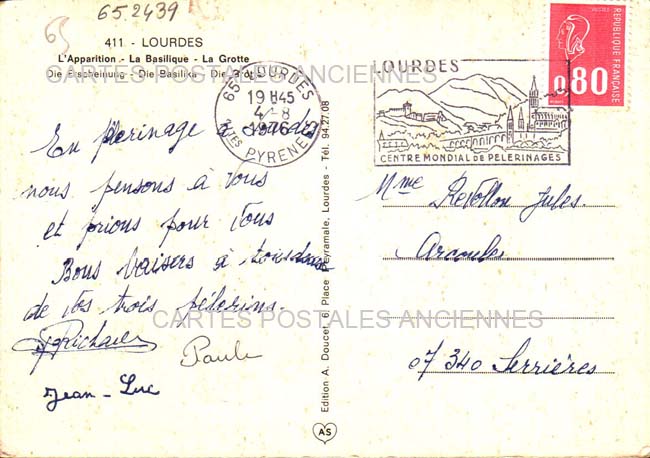 65.2439
65
411 - LOURDES
L'Apparition - La Basilique - La Grotte
Die Erscheinung - Die Basilika - Die Grotte
CARTES POSTALES ANCIENNES
65 LOURDES
19 H45
4-8
1976
HTES PYRENEES
LOURDES
CENTRE MONDIAL DE PELERINAGES
0,80
REPUBLIQUE FRANÇAISE
En pèlerinage à Lourdes
nous pensons à vous
et prions pour vous
Bons baisers à tous
de vos trois pèlerins.
Richard
Paule
Jean-Luc
Edition A. Doucet, 6, Place Peyramale, Lourdes - Tél. 94.27.08
AS
Mme Revollon Jules
Arcoules
07340 Serrières
CARTES POSTALES ANCIENNES